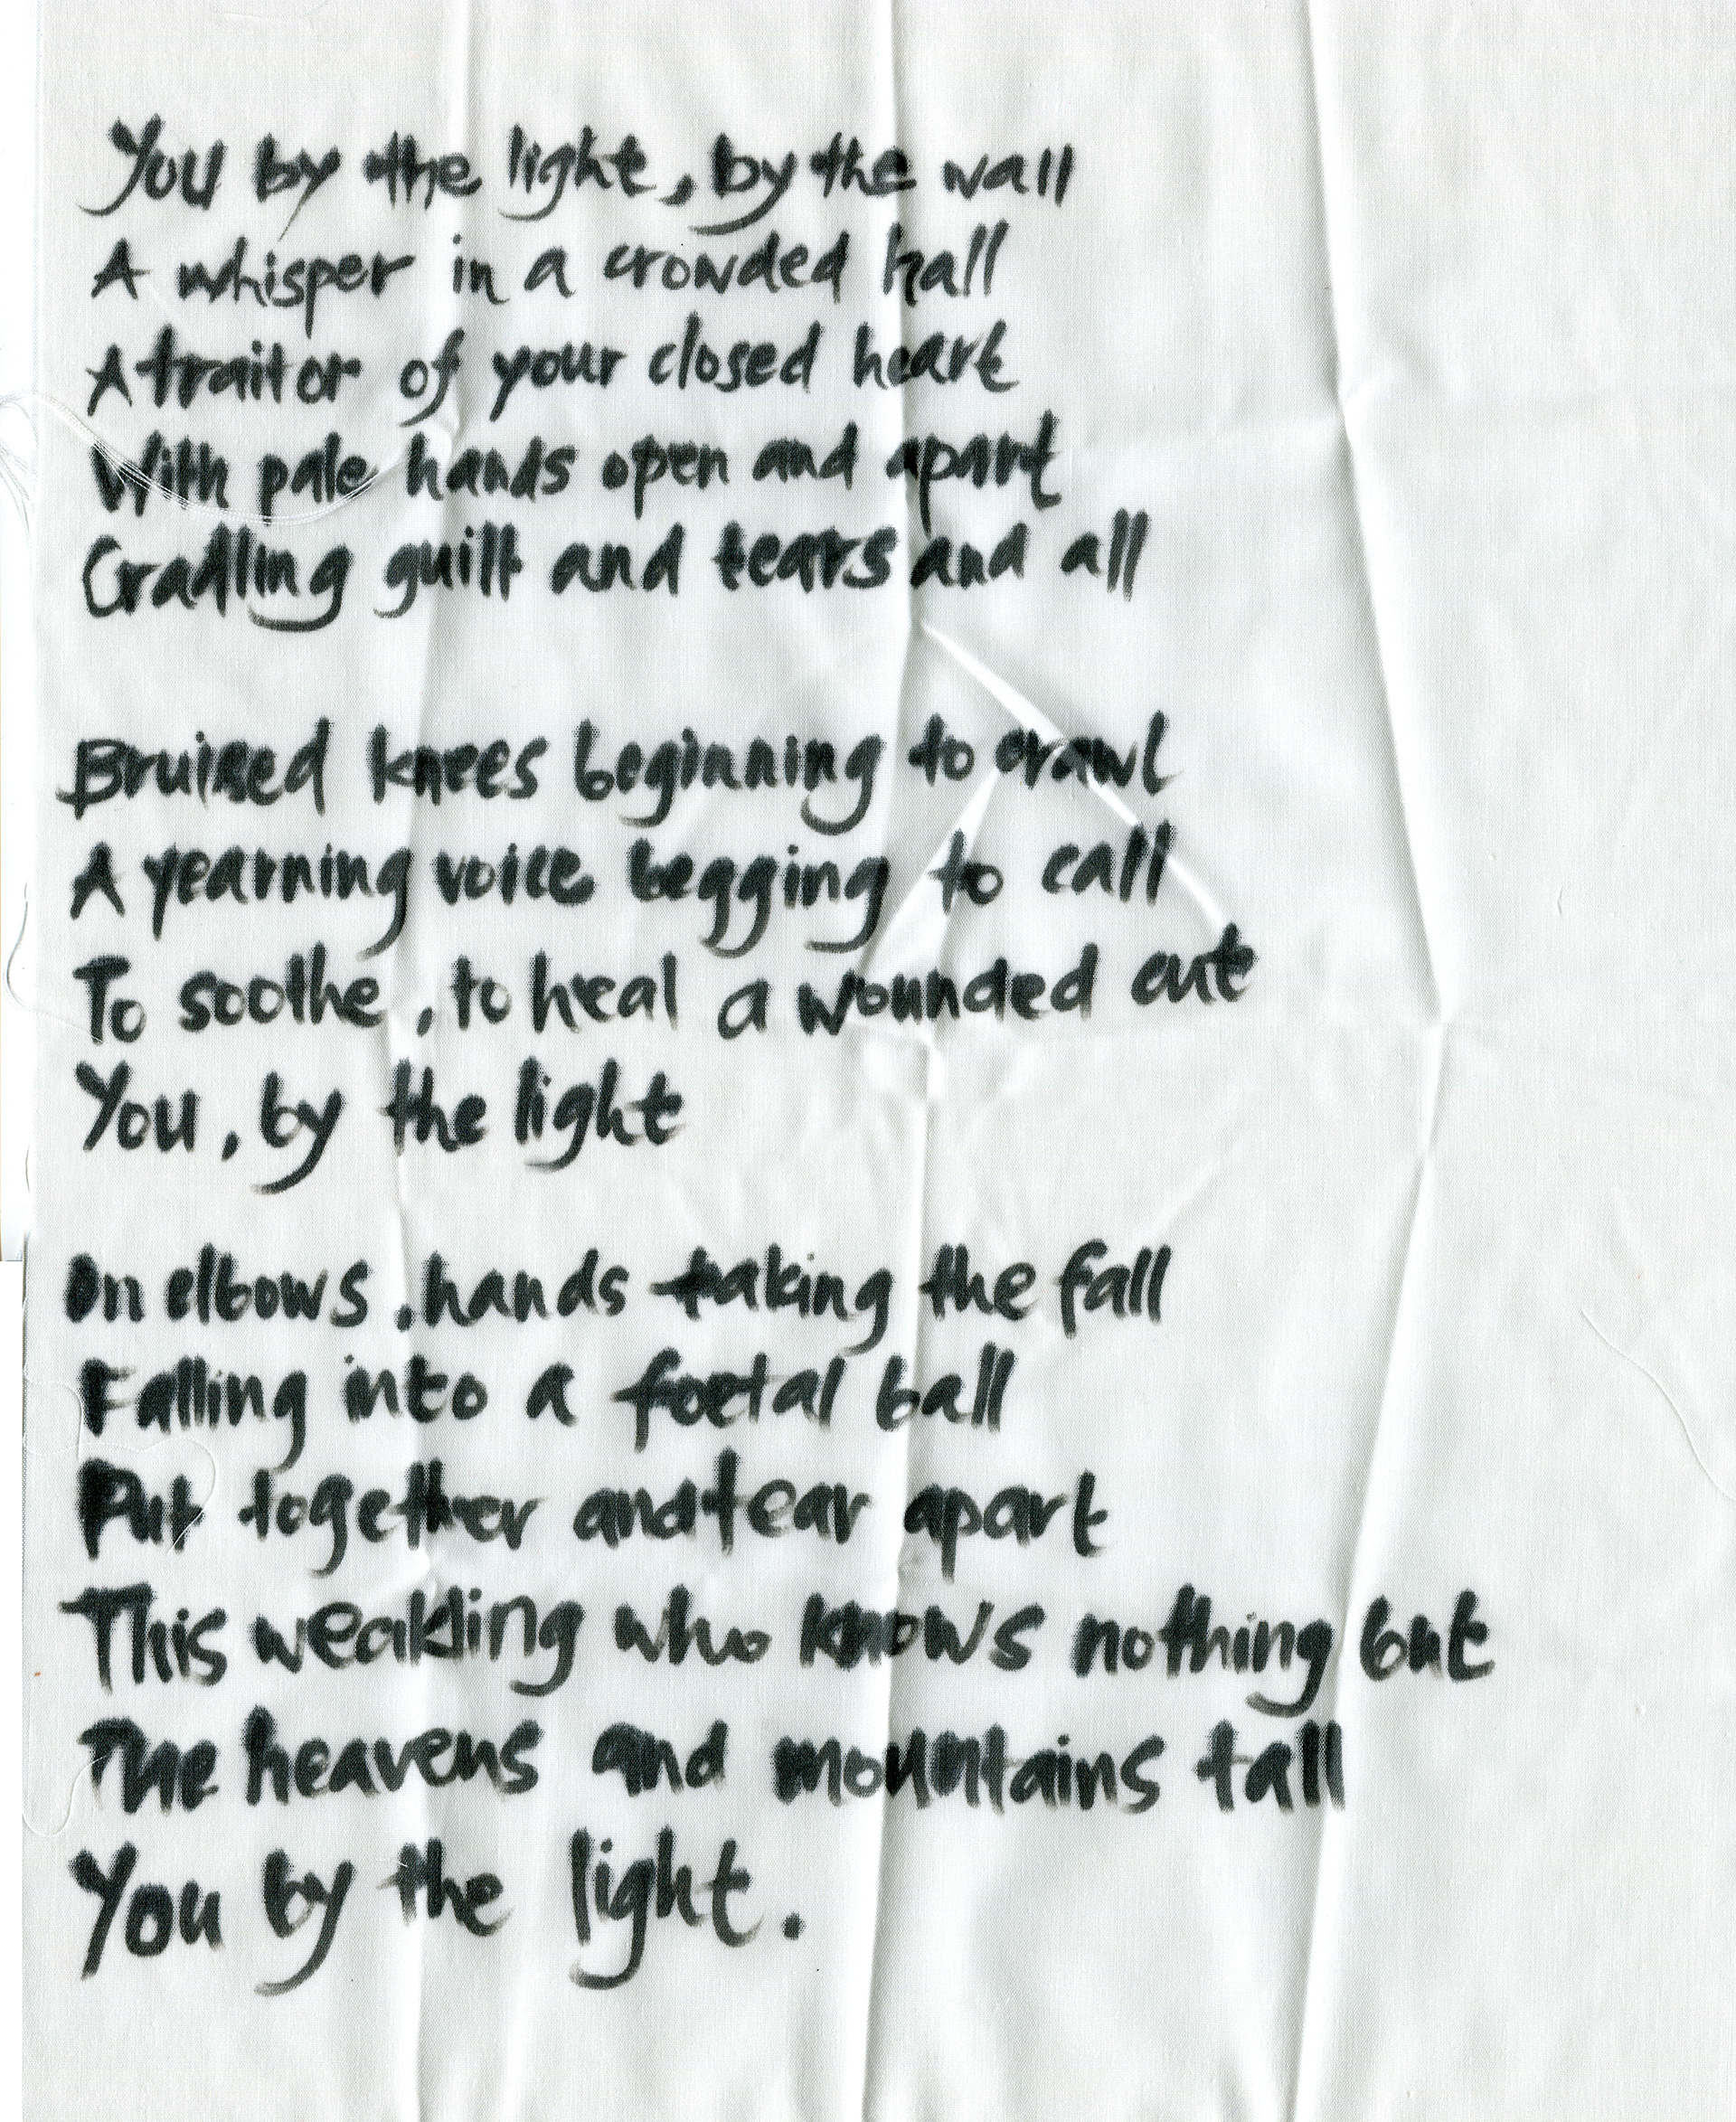 You by the light, by the wall
A whisper in a crowded hall
A traitor of your closed heart
With pale hands open and apart
Cradling guilt and tears and all
Bruised knees beginning to crawl
A yearning voice begging to call
To soothe, to heal a wounded cut
You, by the light
On elbows, hands taking the fall
Falling into a foetal ball
Put together and tear apart
This weakling who knows nothing but
The heavens and mountains tall
You by the light.